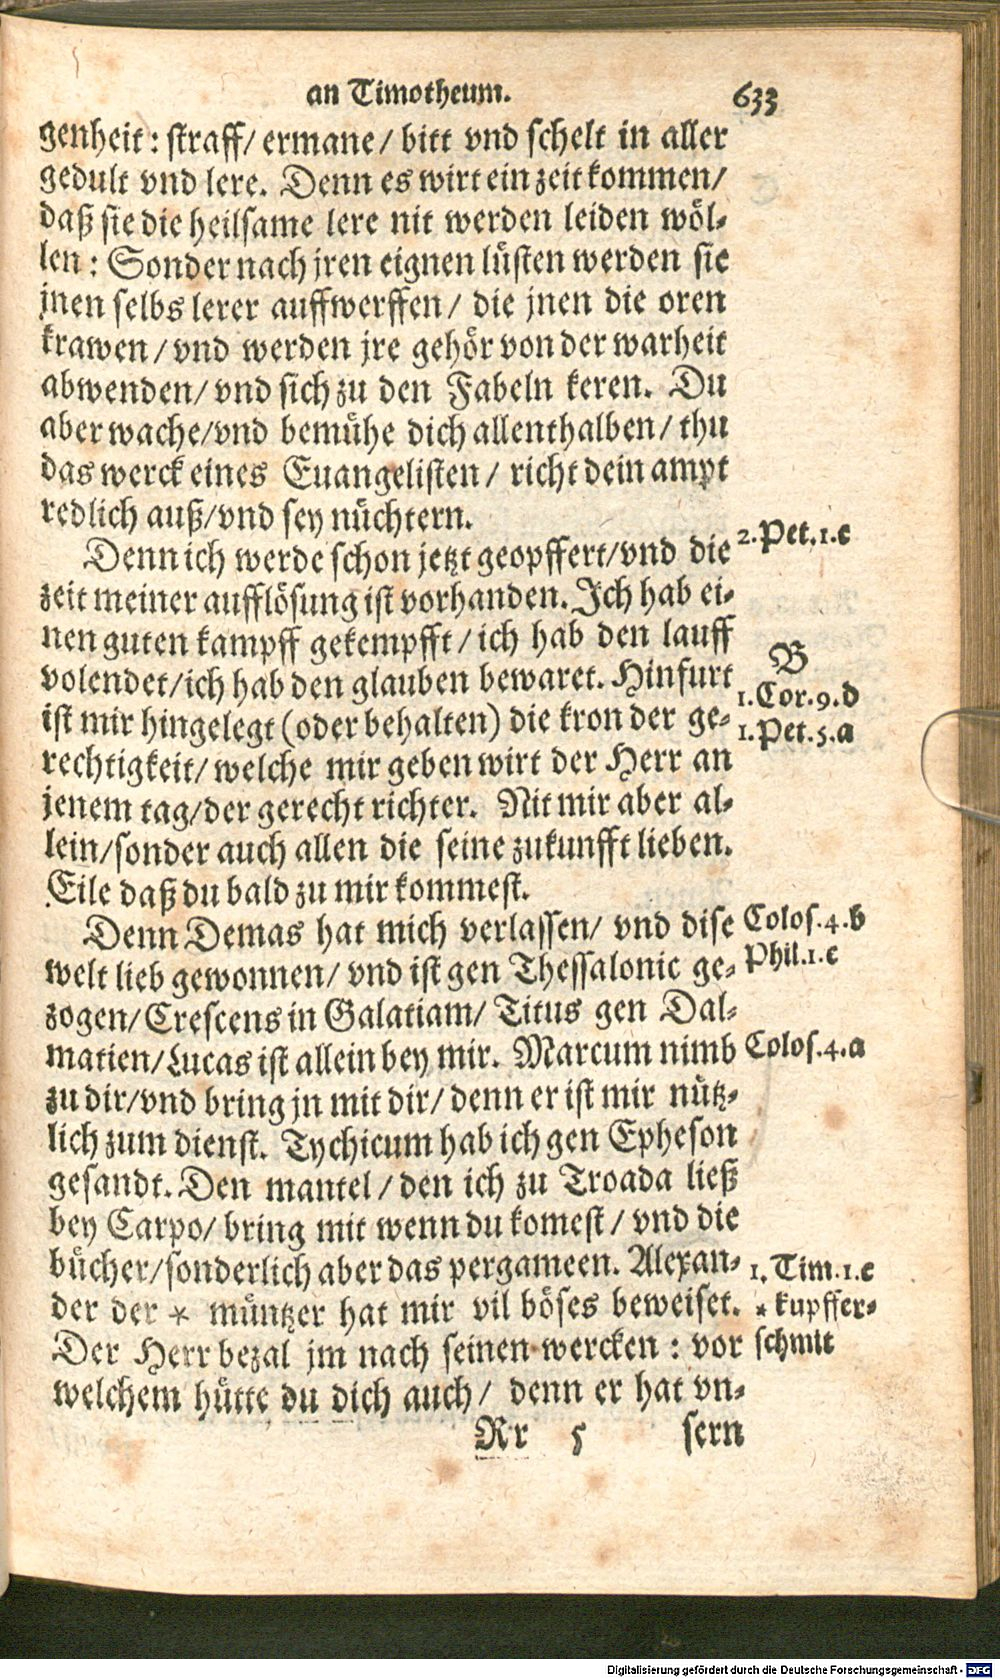 an Timotheum. 633
genheit: straff/ ermane/ bitt vnd schelt in aller
gedult vnd lere. Denn es wirt ein zeit kommen/
daß sie die heilsame lere nit werden leiden wöl-
len: Sonder nach jren eignen lüsten werden sie
jnen selbs lerer auffwerffen/ die jnen die oren
krawen/ vnd werden jre gehör von der warheit
abwenden/ vnd sich zu den Fabeln keren. Du
aber wache/vnd bemühe dich allenthalben/ thu
das werck eines Euangelisten/ richt dein ampt
redlich auß/vnd sey nüchtern.
Denn ich werde schon jetzt geopffert/vnd die 2.Pet.1.c
zeit meiner aufflösung ist vorhanden. Ich hab ei-
nen guten kampff gekempfft/ich hab den lauff
B
volendet/ich hab den glauben bewaret. Hinfurt 1.Cor.9.d
ist mir hingelegt (oder behalten) die kron der ge- 1.Pet.5.a
rechtigkeit/ welche mir geben wirt der Herr an
jenem tag/der gerecht richter. Nit mir aber al-
lein/sonder auch allen die seine zukunfft lieben.
Eile daß du bald zu mir kommest.
Denn Demas hat mich verlassen/ vnd dise Colos.4.b
welt lieb gewonnen/ vnd ist gen Thessalonic ge- Phil.1.c
zogen/Crescens in Galatiam/ Titus gen Dal-
matien/Lucas ist allein bey mir. Marcum nimb Colos.4.a
zu dir/vnd bring jn mit dir/ denn er ist mir nütz-
lich zum dienst. Tychicum hab ich gen Epheson
gesandt. Den mantel/den ich zu Troada ließ
bey Carpo/ bring mit wenn du komest/ vnd die
bücher/sonderlich aber das pergameen. Alexan- 1.Tim.1.c
der der * müntzer hat mir vil böses beweiset. * kupffer-
Der Herr bezal jm nach seinen wercken: vor schmit
welchem hütte du dich auch/ denn er hat vn-
Rr 5 sern
Digitalisierung gefördert durch die Deutsche Forschungsgemeinschaft - DFG